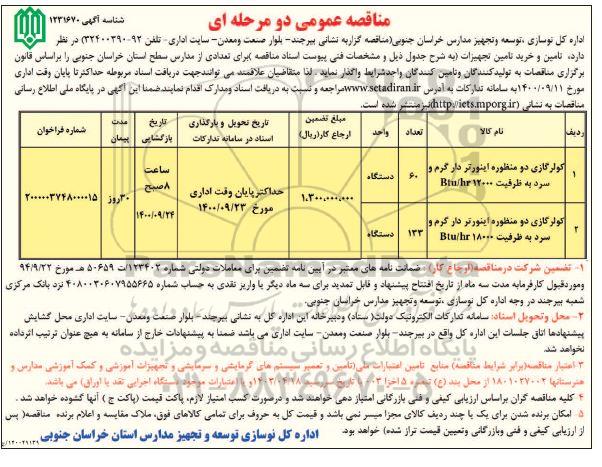 مناقصه عمومی دو مرحله ای
شناسه آگهی ۱۲۳۱۶۷۰
اداره کل نوسازی ،توسعه وتجهیز مدارس خراسان جنوبی(مناقصه گزاربه نشانی بیرجند- بلوار صنعت ومعدن- سایت اداری- تلفن ۹۲-۳۲۴۰۰۳۹۰) در نظر
دارد، تامین و خرید تامین تجهیزات (به شرح جدول ذیل و مشخصات فنی پیوست اسناد مناقصه )برای تعدادی از مدارس سطح استان خراسان جنوبی را براساس قانون
برگزاری مناقصات به تولیدکنندگان وتامین کنندگان واجدشرایط واگذار نماید . لذا متقاضیان علاقمند می توانندجهت دریافت اسناد مربوطه حداکثرتا پایان وقت اداری
مورخ ۱۴۰۰/۰۹/۱۱به سامانه تدارکات به آدرس www.setadiran.irمراجعه و نسبت به دریافت اسناد ومدارک اقدام نمایند.ضمنا این آگهی در پایگاه ملی اطلاع رسانی
مناقصات به نشانی (http://iets.mporg.ir)نیزمنتشر شده است.
ردیف نام کالا تعداد واحد مبلغ تضمین ارجاع کار(ریال) تاریخ تحویل و بارگذاری اسناد در سامانه تدارکات تاریخ بازگشایی مدت پیمان شماره فراخوان
۱ کولرگازی دو منظوره اینورتر دار گرم و سرد به ظرفیت ۱۲۰۰۰ Btu/hr ۶۰ دستگاه
۱.۳۰۰.۰۰۰.۰۰۰ حداکثرپایان وقت اداری مورخ ۱۴۰۰/۰۹/۲۳ ساعت ۸صبح ۱۴۰۰/۰۹/۲۴ ۳۰روز ۲۰۰۰۰۰۳۷۴۸۰۰۰۰۱۵
۲ کولرگازی دو منظوره اینورتر دار گرم و سرد به ظرفیت ۱۸۰۰۰ Btu/hr ۱۳۳ دستگاه
۱- تضمین شرکت درمناقصه(ارجاع کار) : ضمانت نامه های معتبر در آیین نامه تضمین برای معاملات دولتی شماره ۱۲۳۴۰۲/ت ۵۰۶۵۹ هـ مورخ ۹۴/۹/۲۲
وموردقبول کارفرمابه مدت سه ماه از تاریخ افتتاح پیشنهاد و قابل تمدید برای سه ماه دیگر یا واریز نقدی به حساب شماره ۴۰۸۰۰۳۰۶۰۷۹۵۵۶۶۵ نزد بانک مرکزی
شعبه بیرجند در وجه اداره کل نوسازی ،توسعه وتجهیز مدارس خراسان جنوبی.
۲- محل وتحویل اسناد: سامانه تدارکات الکترونیک دولت( ستاد) ودبیرخانه این اداره کل به نشانی بیرجند- بلوار صنعت ومعدن- سایت اداری محل گشایش
پیشنهادها اتاق جلسات این اداره کل واقع در بیرجند- بلوار صنعت ومعدن- سایت اداری می باشد ضمنا به پیشنهادات خارج از سامانه به هیچ عنوان ترتیب اثرداده
نخواهد شد.
۳-اعتبار مناقصه(برابر شرایط مناقصه) منابع تامین اعتبارات ملی(تامین و تعمیر سیستم های گرمایشی و سرمایشی و تجهیزات آموزشی و کمک آموزشی مدارس و
هنرستانها ۱۸۰۱۰۳۷۰۰۲ از محل بند (ج) تبصره ۵(اخزا ۰۰۳ با تاریخ سررسید ۱۴۰۲/۰۴/۱۸)و با اعتبارات موجود دستگاه اجرایی نقد یا اوراق) می باشد.
۴- کلیه مناقصه گران براساس ارزیابی کیفی و فنی بازرگانی امتیاز دهی خواهند شد و درصورت کسب امتیاز لازم، پاکت قیمت (پاکت ج ) آنها گشوده خواهد شد.
۵- امکان برنده شدن برای یک یا چند ردیف کالای مجزا میسر نمی باشد و قیمت کل به حروف برای تمامی کالاهای فوق، ملاک مقایسه و اعلام برنده مناقصه( پس
از ارزیابی کیفی و فنی وبازرگانی وتعیین قیمت تراز شده) خواهد بود.
اداره کل نوسازی توسعه و تجهیز مدارس استان خراسان جنوبی